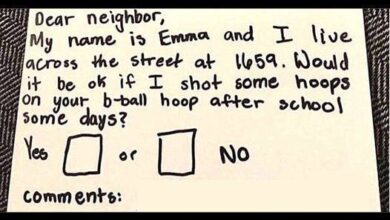 Dear neighbor,
My name is Emma and I live
across the street at 1659. Would
it be ok if I shot some hoops
on your b-ball hoop after school
some days?
Yes or No
comments: